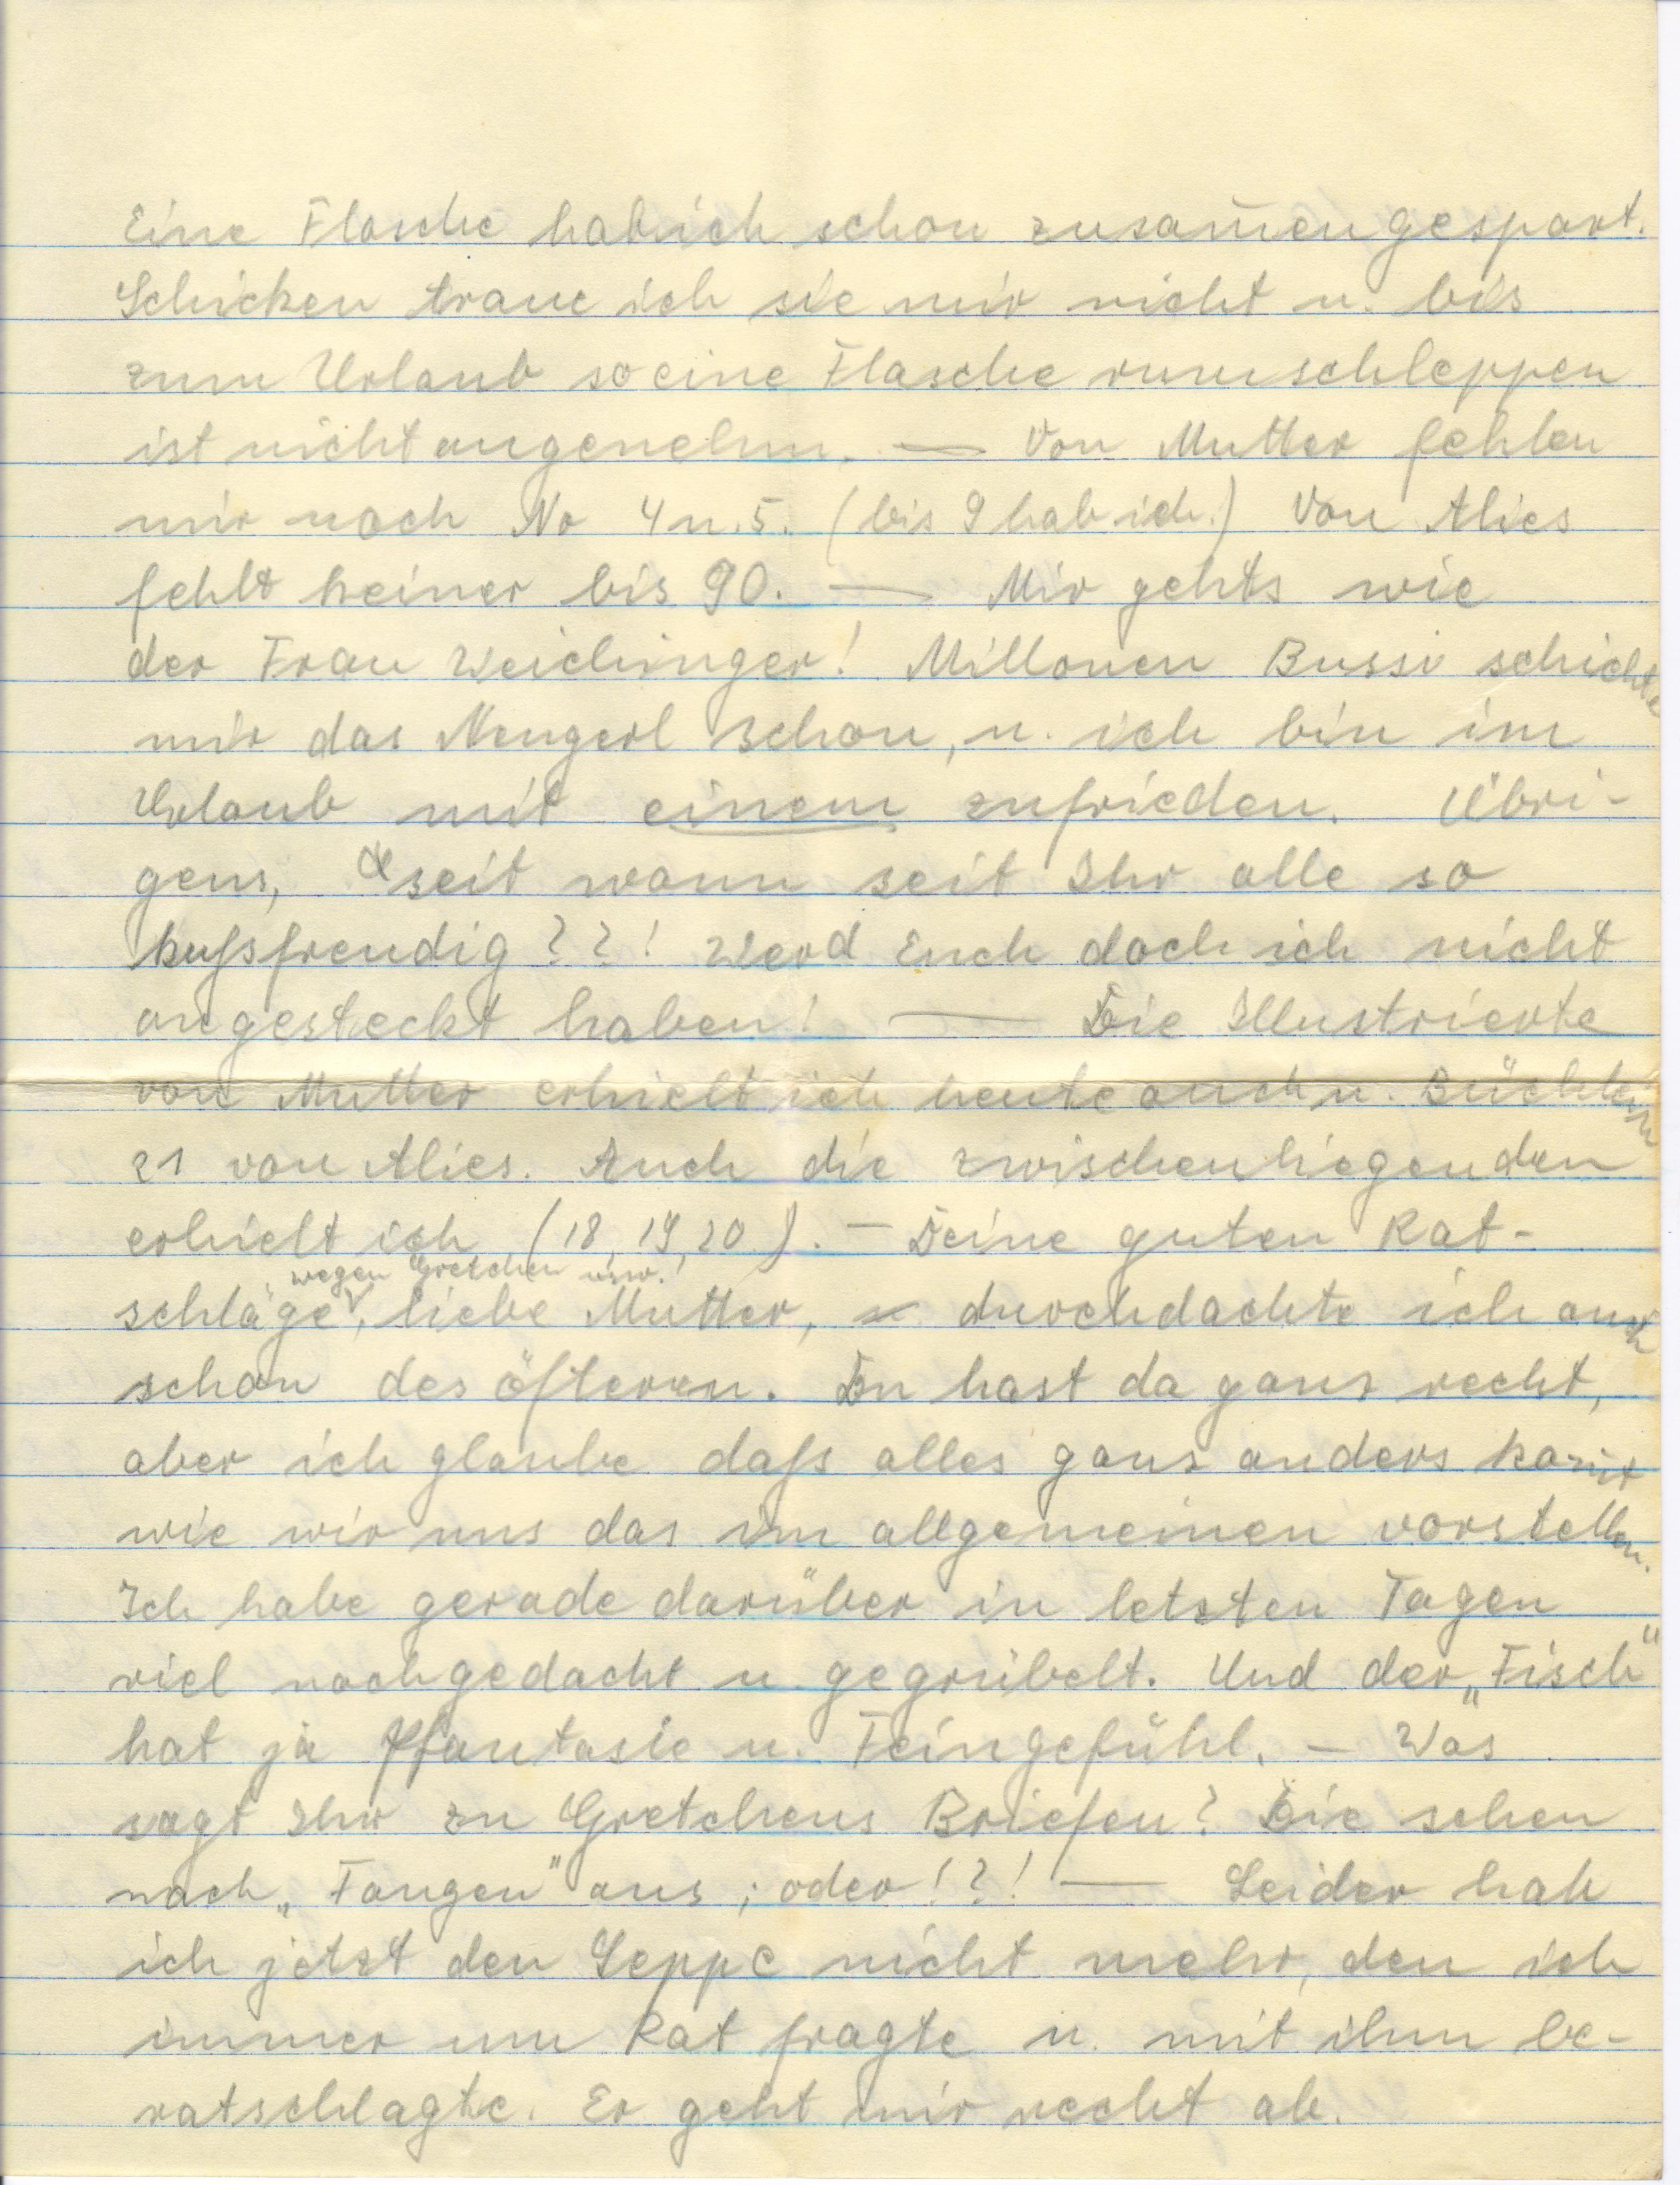 Eine Flasche hab ich schon zusam̄engespart.
Schicken traue ich sie mir nicht u. bis
zum Urlaub so eine Flasche rumschleppen
ist nicht angenehm. — Von Mutter fehlen
mir noch No 4 u. 5. (bis 9 hab ich.) Von Alies
fehlt keiner bis 90. — Mir gehts wie
der Frau Weichinger! Millonen Bussi schickte
mir das Mengerl schon, u. ich bin im
Urlaub mit einem zufrieden. Übri-
gens, seit wann seit Ihr alle so
kußfreudig??! Werd Euch doch ich nicht
angesteckt haben! — Die Illustrierte
von Mutter erhielt ich heute auch u. Büchlein
21 von Alies. Auch die zwischenliegenden
erhielt ich (18, 19, 20). — Deine guten Rat-
wegen Gretchen usw.
schläge, liebe Mutter, durchdachte ich auch
schon des öfteren. Du hast da ganz recht,
aber ich glaube daß alles ganz anders kom̄t
wie wir uns das im allgemeinen vorstellen.
Ich habe gerade darüber in letzten Tagen
viel nachgedacht u. gegrübelt. Und der „Fisch"
hat ja Pfantasie u. Feingefühl. — Was
sagt Ihr zu Gretchens Briefen? Die sehen
nach „Fangen" aus; oder!?! — Leider hab
ich jetzt den Seppe nicht mehr, den ich
immer um Rat fragte u. mit ihm be-
ratschlagte. Er geht mir recht ab.